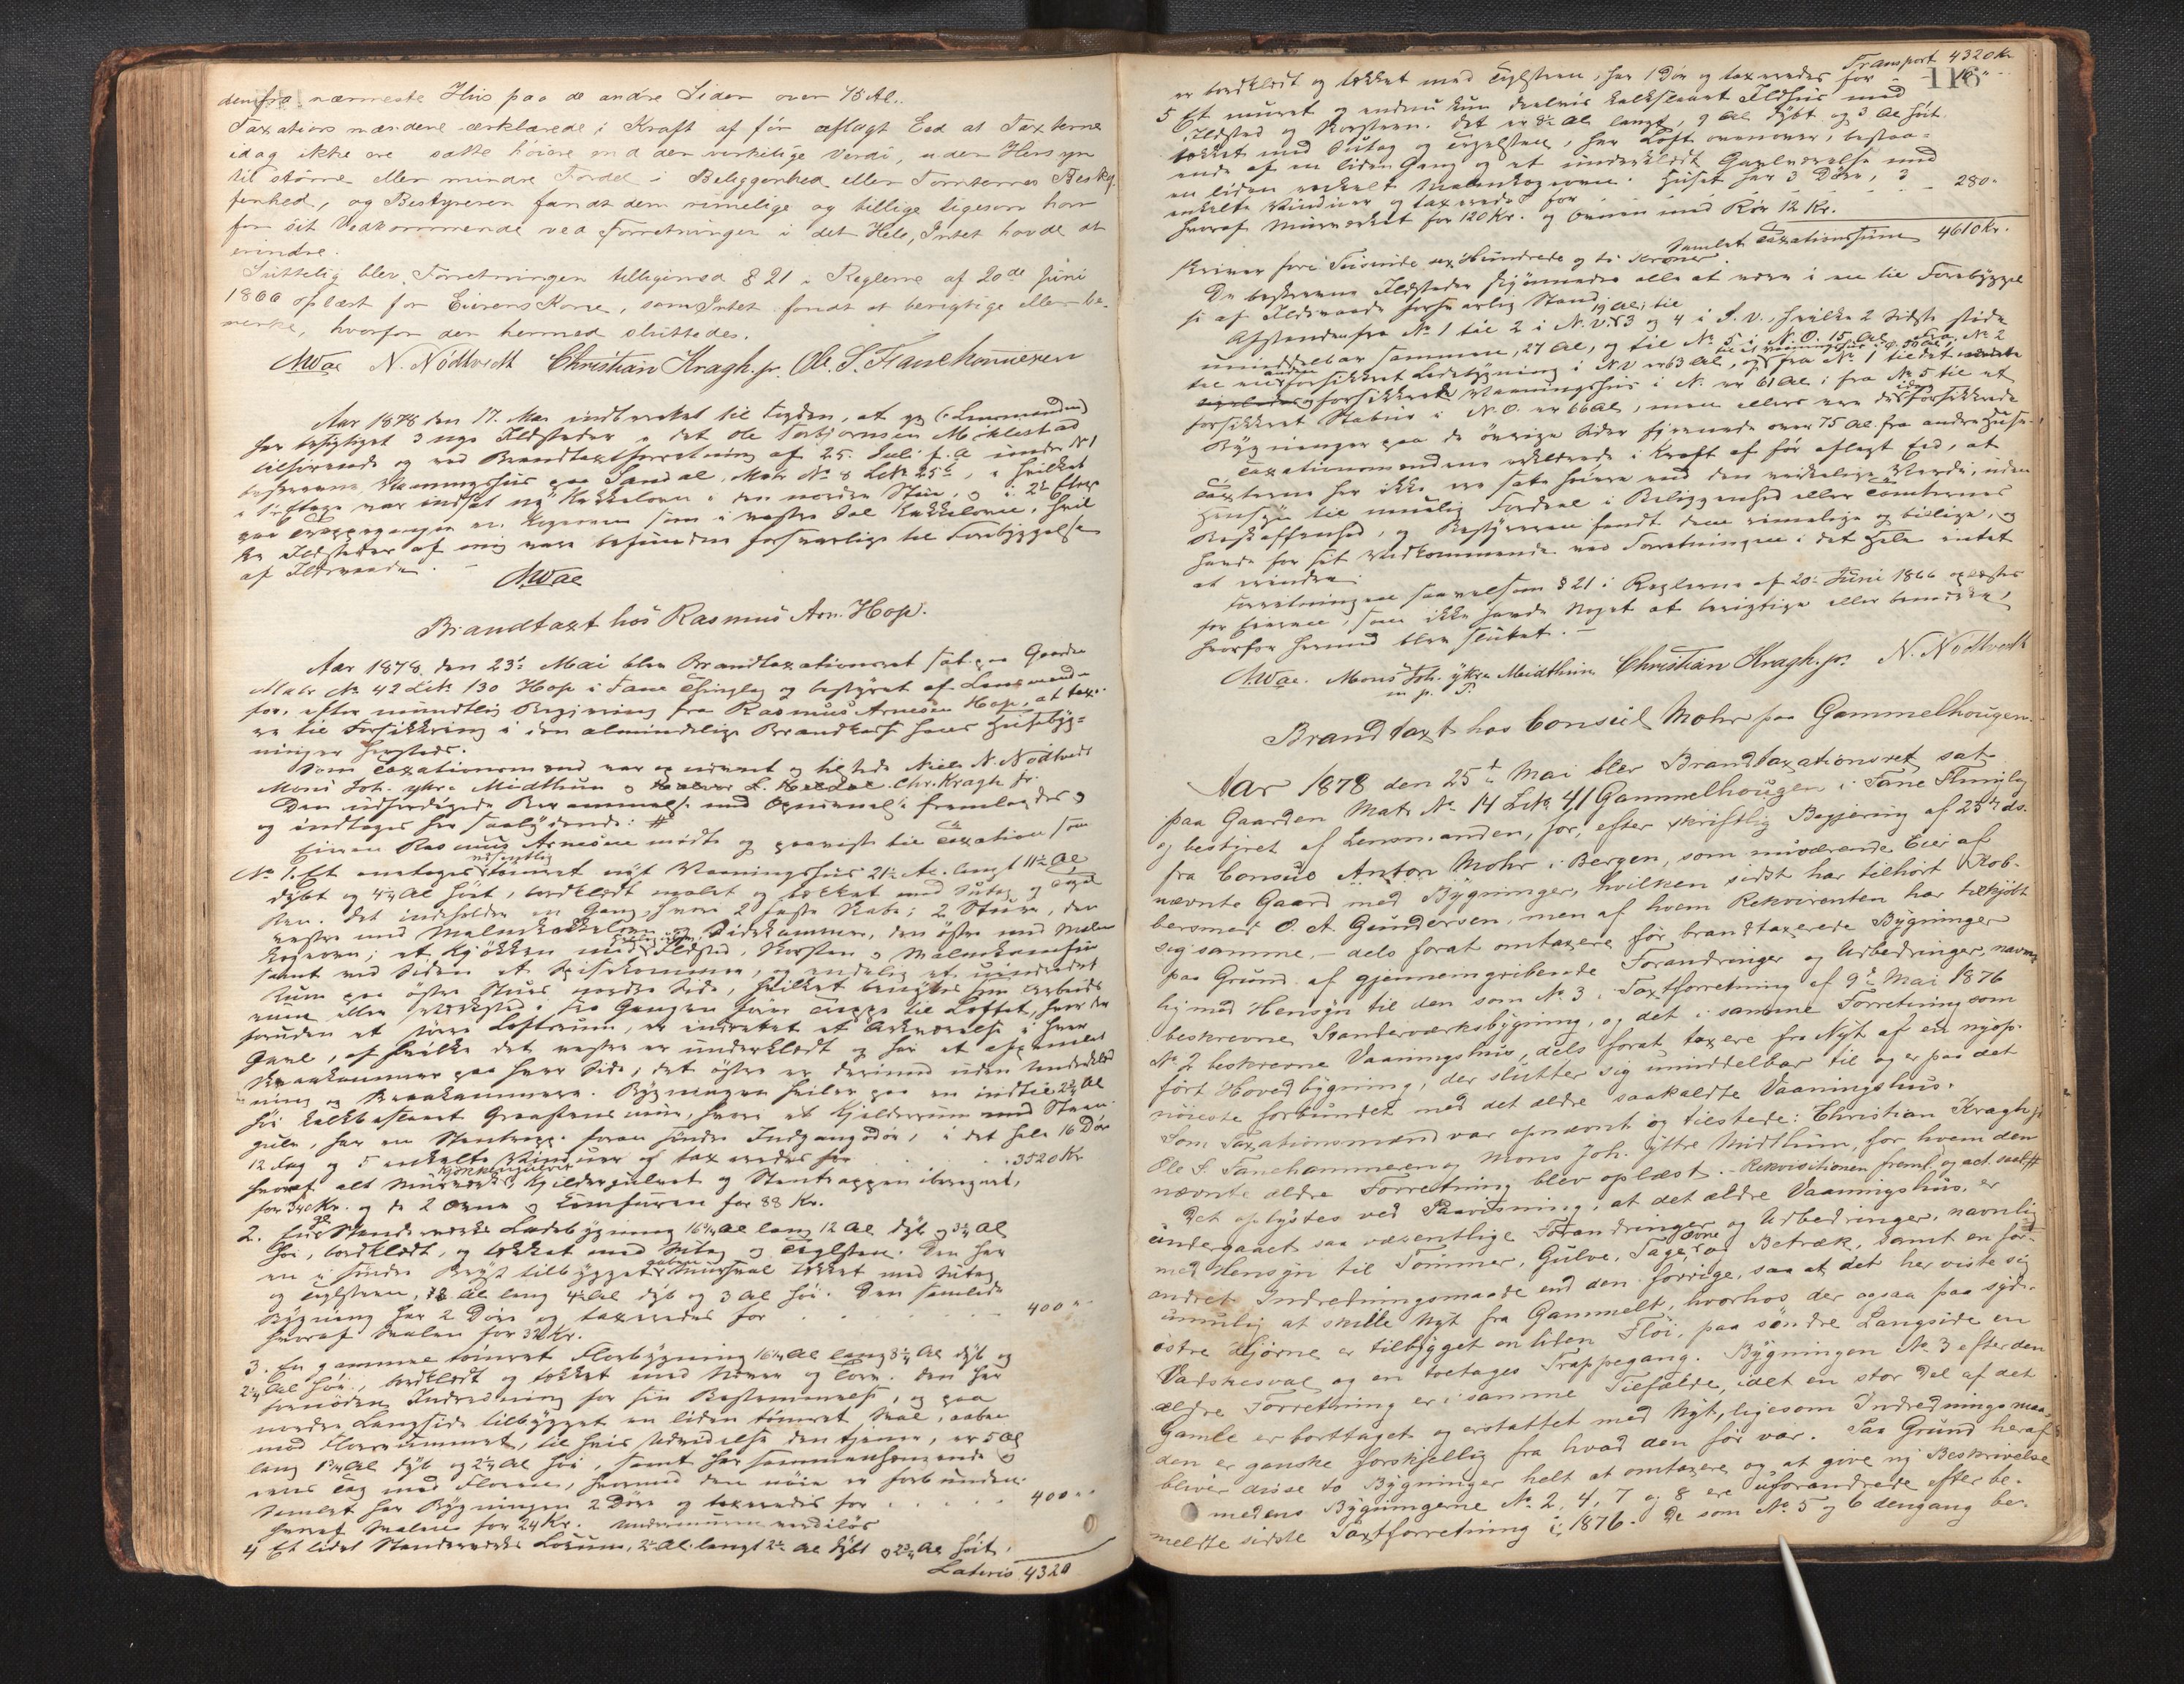 denfra nærmeste Hus paa de andre Sider over 75 Al..
Taxationsmændene erklærede i Kraft af før aflagt Eed at Taxterne
idag ikke ere satte höiere end den virkelige Værdi, uden Hensyn
til större eller mindre Fordel i Beliggenhed eller Tomternes Beskaf-
fenhed, og Bestyreren fandt dem rimelige og billige ligesom han
for sit Vedkommende ved Forretningen i det Hele, Intet havde at
erindre.
Sluttelig blev Forretningen tilligemed § 21 i Reglerne af 20de Juni
1866 oplæst for Eierens Kone, som Intet fandt at berigtige eller be-
mærke, hvorfor den hermed sluttedes.
AWae N. Nödtvedt Christian Kragh. jr. Ole. S. Fanehammeren
Aar 1878 den 17. Mai indberettet til Fogden, at jeg (Lensmanden)
har besigtiget 3 nye Ildsteder i det Ole Torbjørnsen Miklestad
tilhørende og ved Brandtaxtforretning af 25. Juli f. A. under No 1
beskrevne Vaaningshus paa Sandal, Matr No 8 Lb 25b, i hvilket
i 1ste Etage var indsat ny Kakkelovn i den nordre Stue, og i 2den Etage
paa Trappegangen en Kogeovn som i vestre Sal Kakkelovn, hvil
ke Ildsteder af mig var befunden forsvarlige til Forebyggelse
af Ildsvaade. –
AWae
Brandtaxt hos Rasmus Arn. Hop.
Aar 1878, den 23de Mai blev Brandtaxationsret sat paa Gaarden
Matr No 42 Lb 130 Hop i Fane Thinglag og bestyret af Lensmanden
for, efter mundtlig Begjæring fra Rasmus Arnesen Hop, at taxe-
re til Forsikkring i den almindelige Brandkasse hans Husebyg-
ninger hersteds.
Som Taxationsmænd var opnævnt og tilstede Niels N. Nödtvedt
Mons Joh. ytre Midthun og Chr. Kragh jr.
Den udfærdigede Berammelse med Opnævnelse fremlagdes og
og indtages her saalydende: #
Eieren Rasmus Arnesen mødte og paaviste til Taxation som
No 1. Et enetages tømret nyt Vaaningshus 21½ Al. langt 11½ Al
dybt og 4¾ Al høit, bordklædt malet og tækket med Sutag og Tegl
sten. Det indeholder en Gang, hvori 2 faste Skabe; 2 Stuer, den
vestre med Malmkakkelovn og Sidekammer, den østre med Malm
kogeovn; et Kjøkken med Ildsted, Skorsten og Malmkomfur
samt ved Siden et Spisekammer, og endelig et uindredet
Rum paa östre Stues nordre Side, hvilket benyttes som Arbeids
rum eller Værksted; fra Gangen fører Trappe til Loftet, hvor der
foruden et større Loftsrum, er indrettet et Værelse i hver
Gavl, af hvilke det vestre er underklædt og har et afpanelet
Kvaakammer paa hver Side, det østre er derimod uden Underklæd
ning og Kvaakammere. Bygningen hviler paa en indtil 2½ Al
høi kalkbestenet Graastensmur, hvori et Kjelderrum med Sten
gulv, har en Stentrappe foran søndre Indgangsdør, i det hele 16 Døre
12 Fag og 5 enkelte Vinduer og taxeredes for . . . 3520 Kr
hvoraf alt Murværk, Kjøkkengulvet Kjeldergulvet og Stentrappen iberegnet,
for 340 Kr. og de 2 Ovne og Komfuren for 88 Kr.
2. En Standerværks Ladebygning 16¾ Al lang 12 Al dyb og 5¼ Al
høi, bordklædt, og tækket med Sutag og Teglsten. Den har
en i søndre Bryst tilbygget aaben Muursval tækket med Sutag
og Teglsten, 12 Al lang 4½ Al dyb og 3 Al høi. Den samlede
Bygning har 2 Døre og taxeredes for . . . . 400 " -
hvoraf Svalen for 32 Kr.
3. En gammel tømret Florbygning 16¼ Al lang 8¼ Al dyb og
2¾ Al høi, bordklædt og tækket med Næver og Torv. Den har
fornøden Indredning for sin Bestemmelse, og paa
nordre Langside tilbygget en liden tømret Sval, aaben
mod Florrummet, til hvis Udvidelse den tjener, er 5 Al
lang 1¾ Al dyb og 2¼ Al høi, samt har sammenhængende
ens Tag med Floren, hvormed den nöie er forbunden.
Samlet har Bygningen 2 Døre og taxeredes for . . . . 400 " "
hvoraf Svalen for 24 Kr. Undermuren værdiløs
4 Et lidet Standerværks Lokum, 2½ Al. langt 2½ Al dybt og 2¾ Al høit.
Lateris 4320
Transport 4320 Kr
116
er bordklædt og tækket med Teglsten, har 1 Dør og taxeredes for - 10 " -
5 Et muret og endnu kun deelvis kalkslaaet Ildhus med
Ildsted og Skorsten. Det er 8½ Al langt, 9 Al dybt og 3 Al høit.
tækket med Sutag og Teglsten, har Loft ovenover, bestaa-
ende af en liden Gang og et underklædt Gavlværelse med
en liden enkelt Malmkogeovn. Huset har 3 Døre, 3
enkelte Vinduer og taxeredes for . . . . 280 "
hvoraf Murværket for 120 Kr. og Ovnen med Rør 12 Kr.
Samlet Taxationssum 4610 Kr.
skriver fire Tusinde sex Hundrede og ti Kroner.
De beskrevne Ildsteder skjönnedes alle at være i en til Forebyggel
se af Ildsvaade forsvarlig Stand.
Afstanden fra No 1 til 2 i N.V. 19 Al; til 3 og 4 i S.V., hvilke 2 sidste støde
umiddelbar sammen, 27 Al, og til No 5 i N.O. 15 Al. Fra No 2
til en anden forsikkret Ladebygning i N.V. er 63 Al, og fra No 1 til det
og forsikkrede Vaaningshus i N. er 61 Al; fra No 5 til et
forsikkret Stabur i N.O. er 66 Al, men ellers ere de idag forsikkrede
Bygninger paa de övrige Sider fjernede over 75 Al. fra andre Huse.
Taxationsmændene erklærede i Kraft af før aflagt Eed, at
Taxterne her ikke ere satte høiere end den virkelige Værdi, uden
Hensyn til mulig Fordeel i Beliggenhed eller Tomternes
Beskaffenhed, og Bestyreren fandt dem rimelige og billige, og
havde for sit Vedkommende ved Forretningen i det Hele intet
at erindre.
Forretningen saavelsom § 21 i Reglerne af 20de Juni 1866 oplæstes
for Eieren, som ikke havde Noget at berigtige eller bemærke,
hvorfor hermed blev sluttet. –
AWae. Mons Joh. ytre Meidthun Christian Kragh. jr. N. Nödtvedt
m. p. P.
Brandtaxt hos Consul Mohr paa Gammelhougen.
Aar 1878 den 25de Mai blev Brandtaxationsret sat
paa Gaarden Matr No 14 Lb 41 Gammelhougen i Fane Thinglag
og bestyret af Lensmanden, for, efter skriftlig Begjæring af 23de ds.
fra Consul Anton Mohr i Bergen, som nuværende Eier af
nævnte Gaard med Bygninger, hvilken sidst har tilhört Kob-
bersmed O. A. Gundersen, men af hvem Rekvirenten har tilkjöbt
sig samme, – dels forat omtaxere för brandtaxerede Bygninger
paa Grund af gjennemgribende Forandringer og Udbedringer, navn-
lig med Hensyn til den som No 3 i Taxtforretning af 9de Mai 1876
beskrevne Standerværksbygning, og det i samme Forretning som
No 2 beskrevne Vaaningshus, dels forat taxere fra Nyt af en nyop-
fört Hovedbygning, der slutter sig umiddelbar til og er paa det
nöieste forbundet med det ældre saakaldte Vaaningshus.
Som Taxationsmænd var opnævnt og tilstede: Christian Kragh jr
Ole S. Fanehammeren og Mons Joh. Ytre Midthun, for hvem den
nævnte ældre Forretning blev oplæst. – Rekvisitionen freml. og act. saal. #
Det oplystes ved Paavisning, at det ældre Vaaningshus, er
undergaaet saa væsentlige Forandringer og Udbedringer, navnlig
med Hensyn til Tömmer, Gulve, Tage, Ovne og Betræk, samt en for-
andret Indredningsmaade end den forrige, saa at det her viste sig
umulig at skille Nyt fra Gammelt, hvorhos der ogsaa paa syd-
östre Hjörne er tilbygget en liden Flöi, paa söndre Langside en
Vadskesval og en toetages Trappegang. Bygningen No 3 efter den
ældre Forretning er i samme Tilfælde, idet en stor Del af det
Gamle er borttaget og erstattet med Nyt, ligesom Indrednings maa-
den er ganske forskjellig fra hvad den før var. Paa Grund heraf
bliver disse to Bygninger helt at omtaxere og at give ny Beskrivelse
medens Bygningerne No 2, 4, 7 og 8 ere uforandrede efter be-
meldte sidste Taxtforretning i 1876. De som No 5 og 6 dengang be-